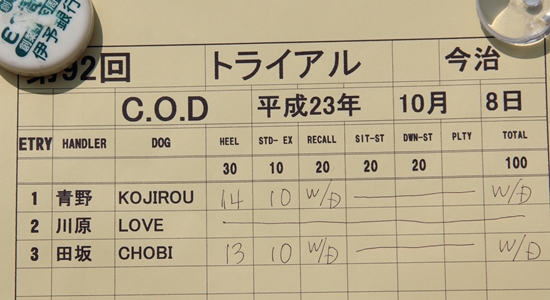 伊予銀行
第92回 トライアル 今治
C.O.D 平成23年 10月 8日
ETRY HANDLER DOG HEEL STD-EX RECALL SIT-ST DWN-ST PLTY TOTAL
30 10 20 20 20 100
1 青野 KOJIROU 14 10 W/D W/D
2 川原 LOVE
3 田坂 CHOBI 13 10 W/D W/D